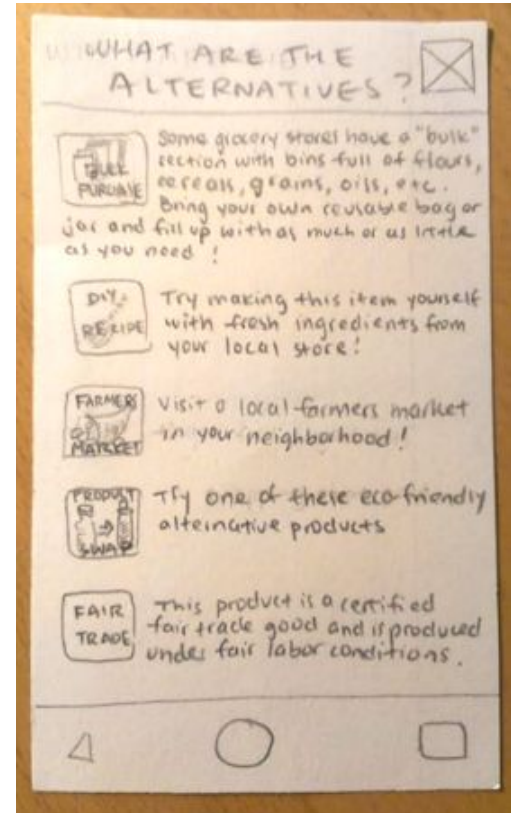 WHAT ARE THE
ALTERNATIVES?
BULK
PURCHASE
Some grocery stores have a "bulk"
section with bins full of flours,
cereals, grains, oils, etc.
Bring your own reusable bag or
jar and fill up with as much or as little
as you need!
DIY
RECIPE
Try making this item yourself
with fresh ingredients from
your local store!
FARMERS
MARKET
Visit a local farmers market
in your neighborhood!
PRODUCT
SWAP
Try one of these eco-friendly
alternative products
FAIR
TRADE
This product is a certified
fair trade good and is produced
under fair labor conditions.